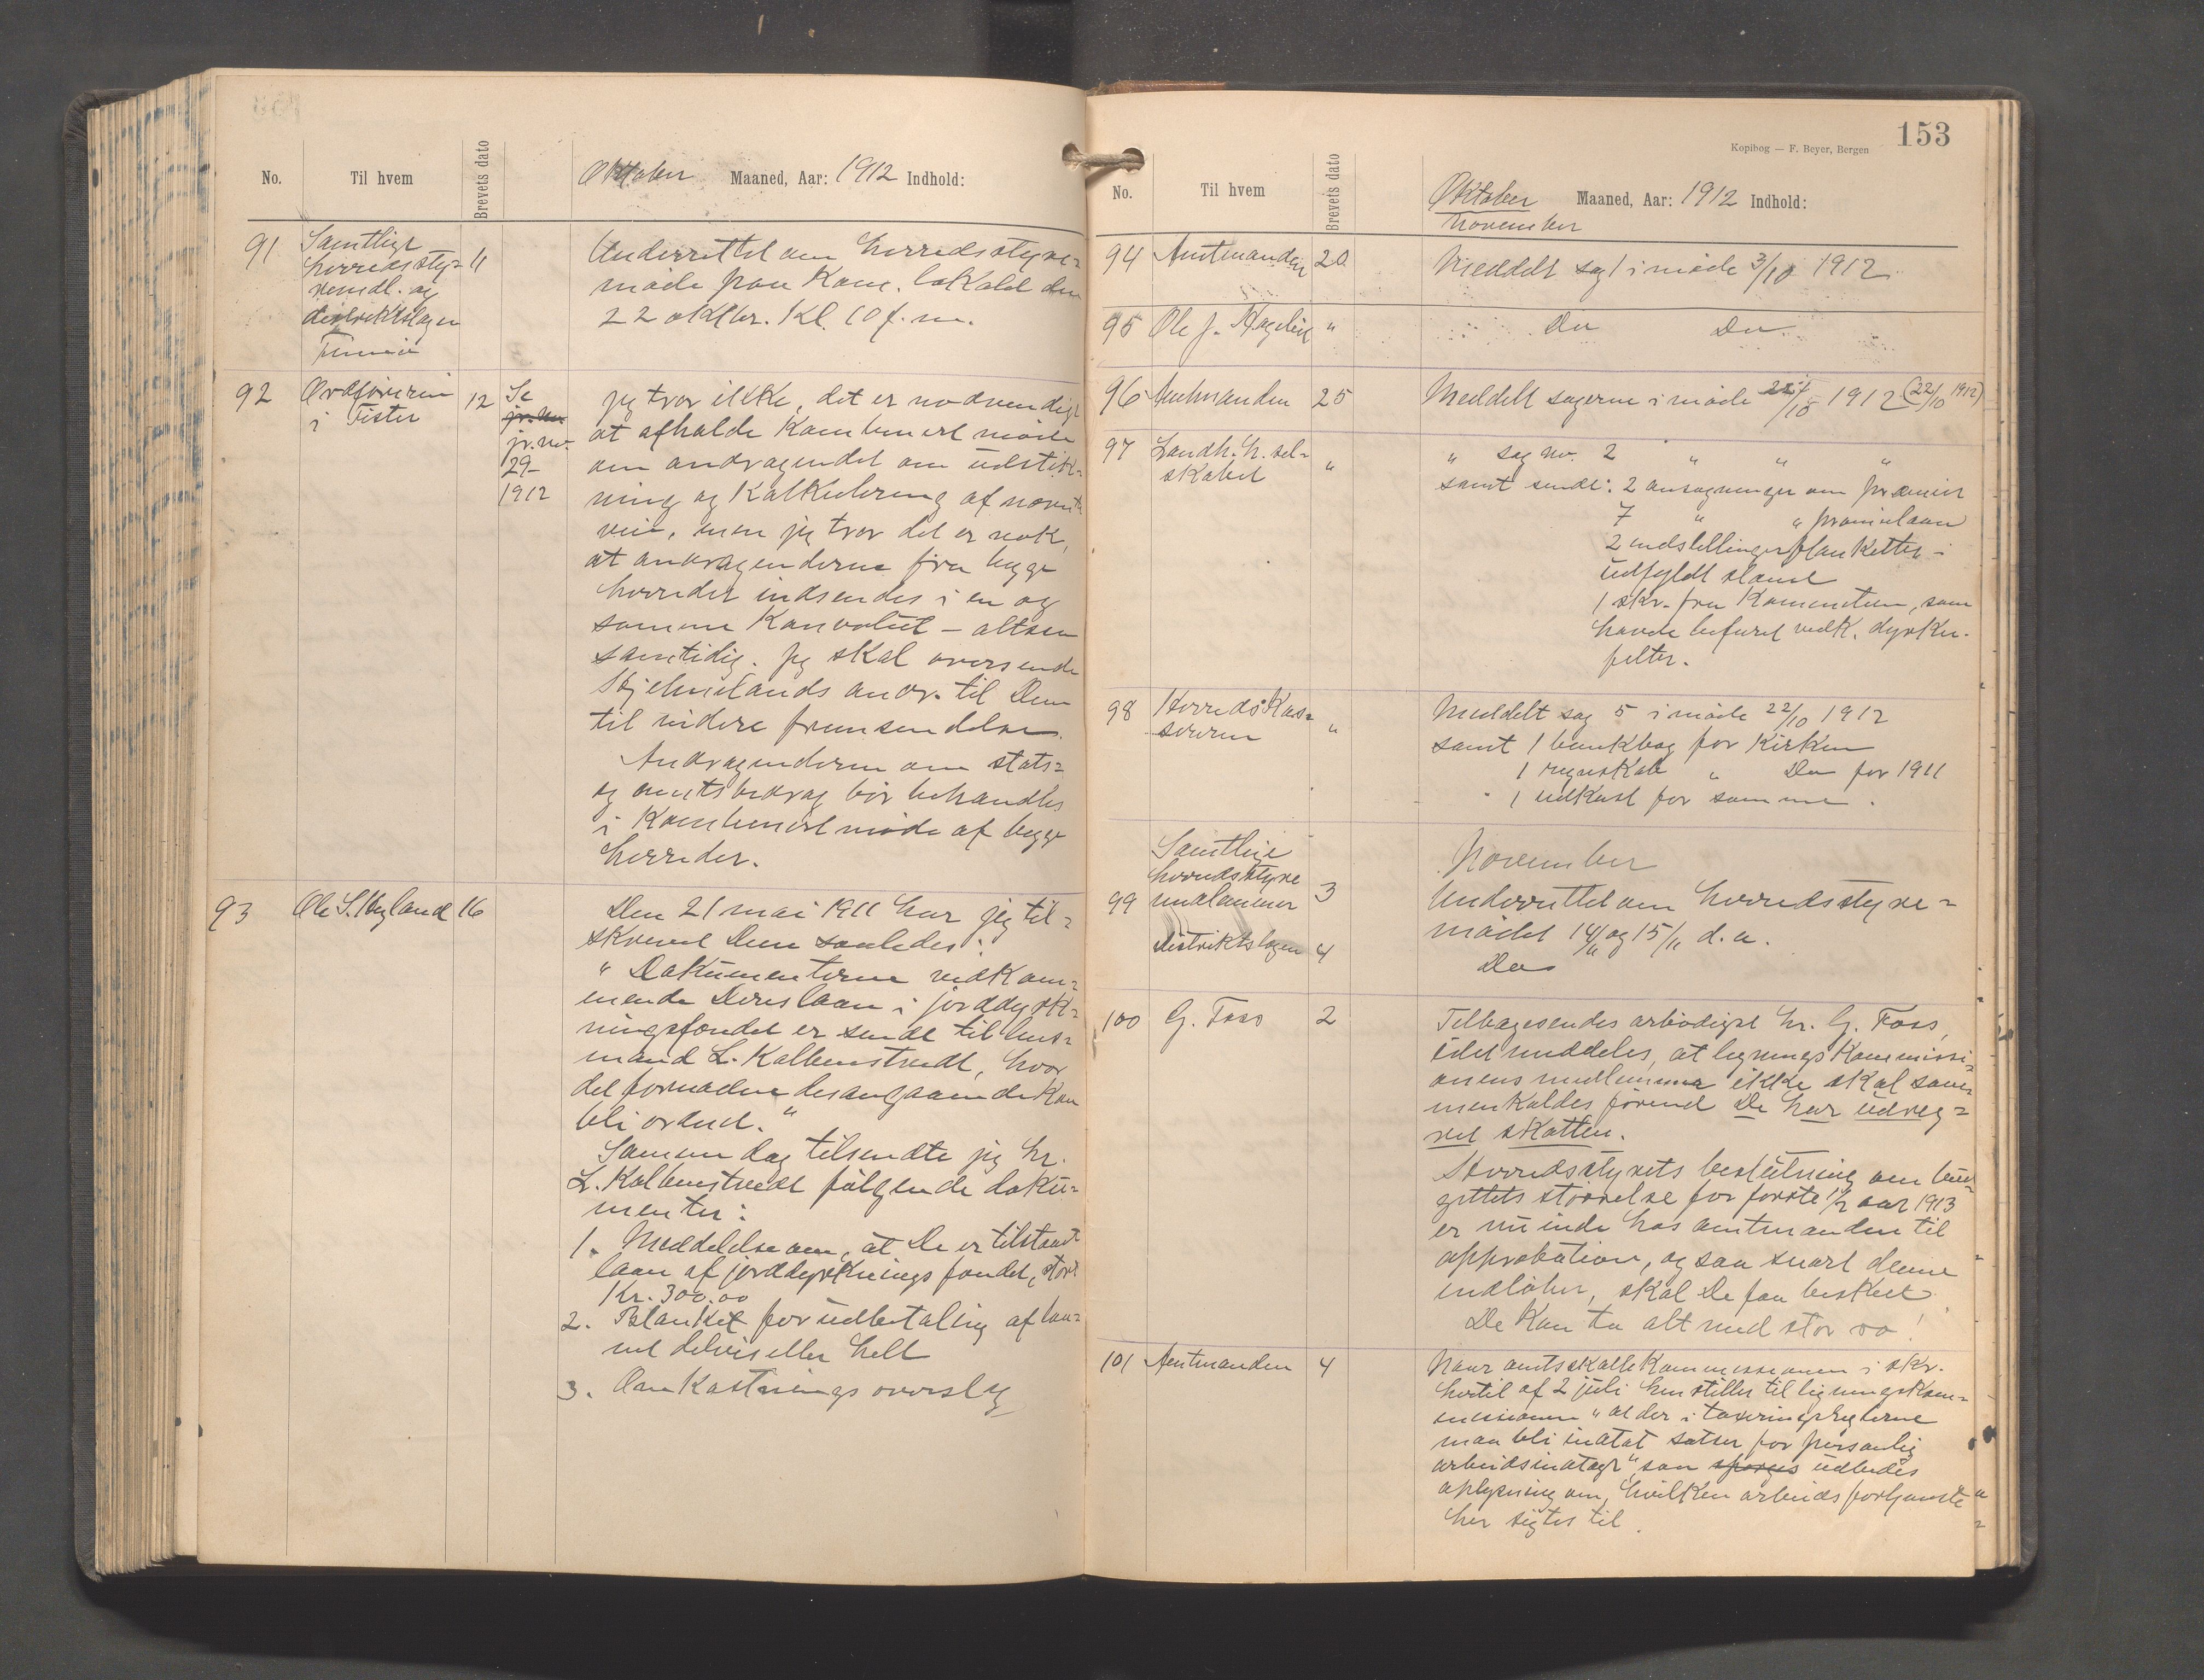 No. Til hvem Brevets dato Oktober Maaned, Aar: 1912 Indhold:
91 Samtlige
herredssty-
remdl. og
distriktslægen
11
Underrettet om herredsstyre-
møde paa Kom. lokalet den
22 oktbr. Kl. 10 f. m.
92 Ordføreren
i Fister
12 Se
jr. no.
29-
1912
Jeg tror ikke, det er nødvendigt
at afholde kombinert møde
om andragendet om udstik-
ning og kalkulering af nævnte
vei, men jeg tror det er nok,
at andragenderne fra begge
herreder indsendes i en og
samme konvolut – altsaa
samtidig. Jeg skal oversende
Hjelmelands andr. til Dem
til videre fremsendelse.
Andragenderne om stats-
og amtsbidrag bør behandles
i kombinert møde af begge
herreder.
93 Ole S. Høyland 16
Den 21 mai 1911 har jeg til-
skrevet Dem saaledes:
" Dokumenterne vedkom-
mende Deres laan i jorddyrk-
ningsfondet er sendt til lens-
mand L. Kolbenstvedt, hvor
det fornødne desangaaende kan
bli ordnet. "
Samme dag tilsendte jeg hr.
L. Kolbenstvedt følgende doku-
menter:
1. Meddelelse om, at De er tilstaaet
laan af jorddyrkningsfondet, stort
Kr. 300.00
2. Blanket for udbetaling af laa-
net delvis eller helt
3. Omkostningsoverslag
153
Kopibog — F. Beyer, Bergen
No. Til hvem Brevets dato Oktober Maaned, Aar: 1912 Indhold:
November
94 Amtmanden 20 Meddelt sag 1 i møde 3/10 1912
95 Ole J. " Do Do
96 Amtmanden 25 Meddelt sagerne i møde 1912 (22/10 1912)
97 Landh. h. sel-
skabet
"
" sag no. 2 " " "
samt sendt: 2 ansøgninger om præmier
7 " " præmielaan
2 indstillingsblanketter i
udfyldt stand
1 skr. fra Komiteen, som
havde befaret vedk. dyrkn.
felter.
98 Herredskas-
sereren
"
Meddelt sag 5 i møde 22/10 1912
samt 1 bankbog for Kirken
1 regnskab " Do for 1911
1 udkast for samme.
November
99 Samtlige
herredsstyre
medlemmer 3
Distriktslægen 4
Underrettet om herredsstyre-
mødet 14/11 og 15/11 d. a.
Do
100 G. Foss 2
Tilbagesendes ærbødigst hr. G. Foss,
idet meddeles, at ligningskommissi-
onens medlemmer ikke skal sam-
menkaldes førend De har udreg-
net skatten.
Herredsstyrets beslutning om bud-
gettets størrelse for første 1/2 aar 1913
er nu inde hos amtmanden til
approbation, og saa snart denne
indløber, skal De faa besked.
De kan ta alt med stor ro!
101 Amtmanden 4
Naar amtsskattekommissionen i skr.
hertil af 2 juli henstiller til ligningskom-
missionen "at der i taxeringsreglerne
maa bli indtat satser for personlig
arbeidsindtægt", saa spørges udbedes
oplysning om, hvilken arbeidsfortjeneste
her sigtes til.